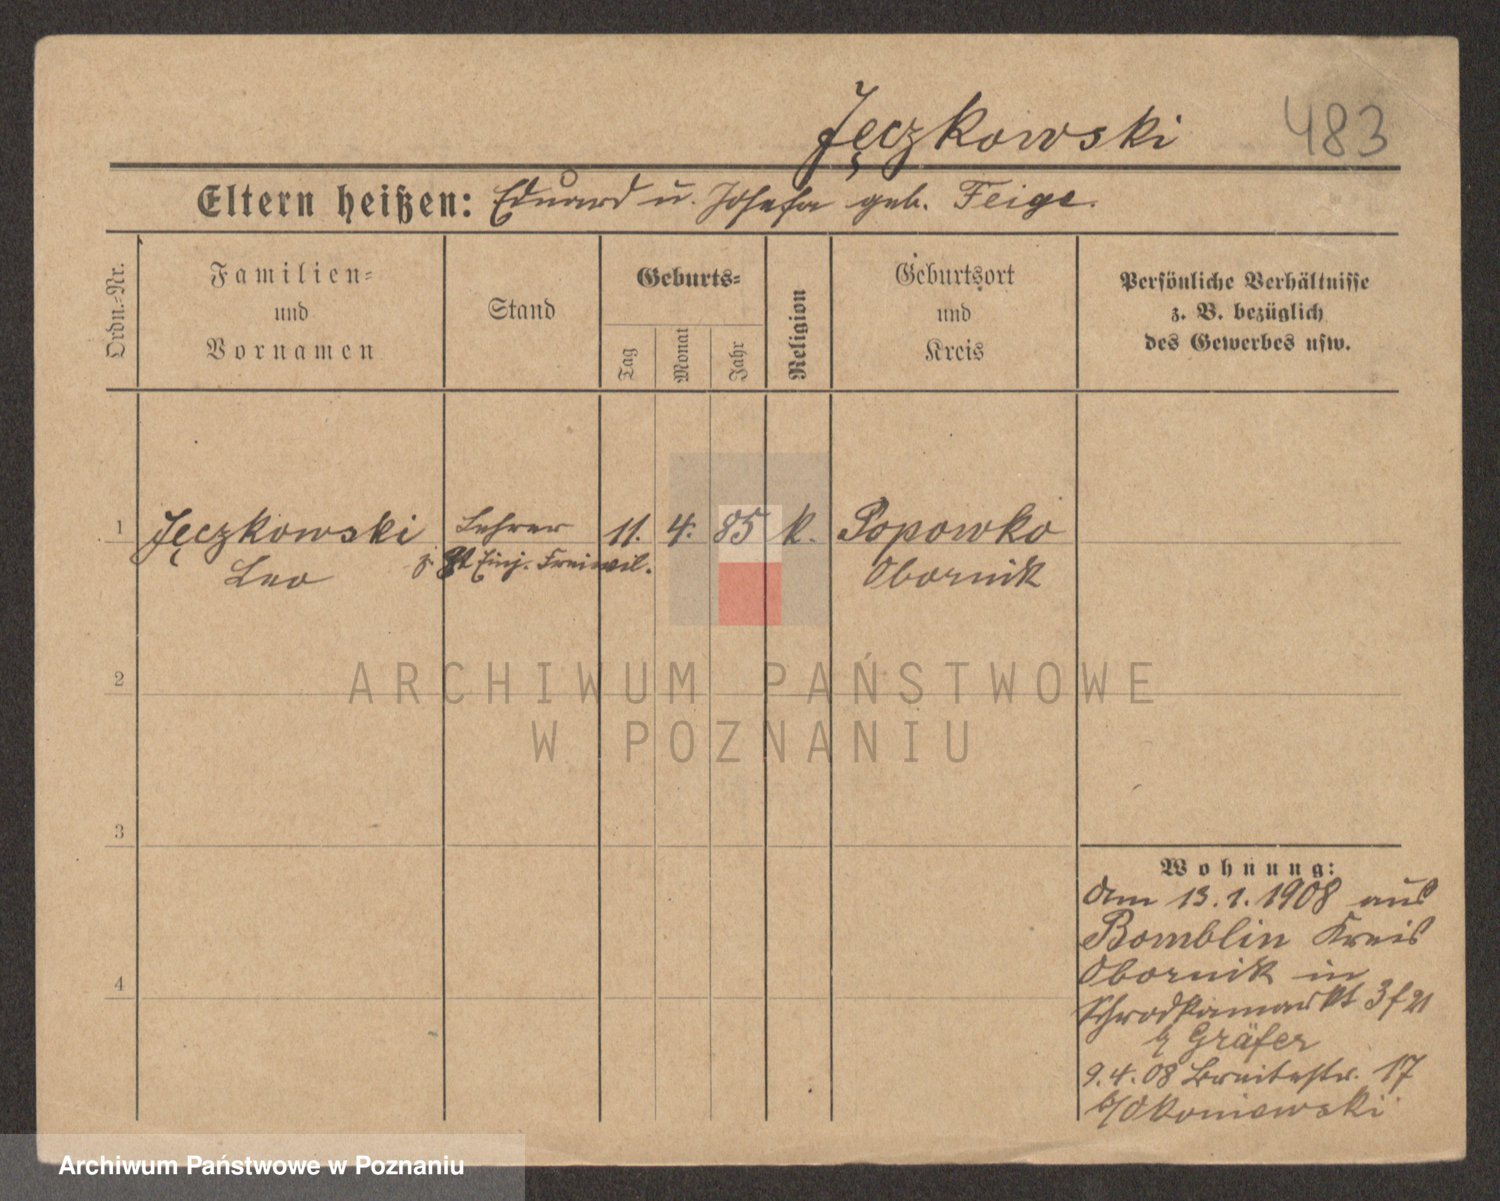 Jęczkowski 483
Eltern heißen: Eduard u. Josefa geb. Feige.
Ordn.-Nr.
Familien-
und
Vornamen
Stand
Geburts-
Tag
Monat
Jahr
Religion
Geburtsort
und
Kreis
Persönliche Verhältnisse
z. B. bezüglich
des Gewerbes usw.
1 Jęczkowski Lehrer 11. 4. 85 k. Popowko
Leo z. Zt Einj. Freiwil. Obornik
2
ARCHIWUM PAŃSTWOWE
W POZNANIU
3
4
Wohnung:
Am 13.1.1908 aus
Bomblin Kreis
Obornik in
Schrodkamarkt 3
Gräfer
9.4.08 Breitestr. 17
b/Okoniewski
Archiwum Państwowe w Poznaniu